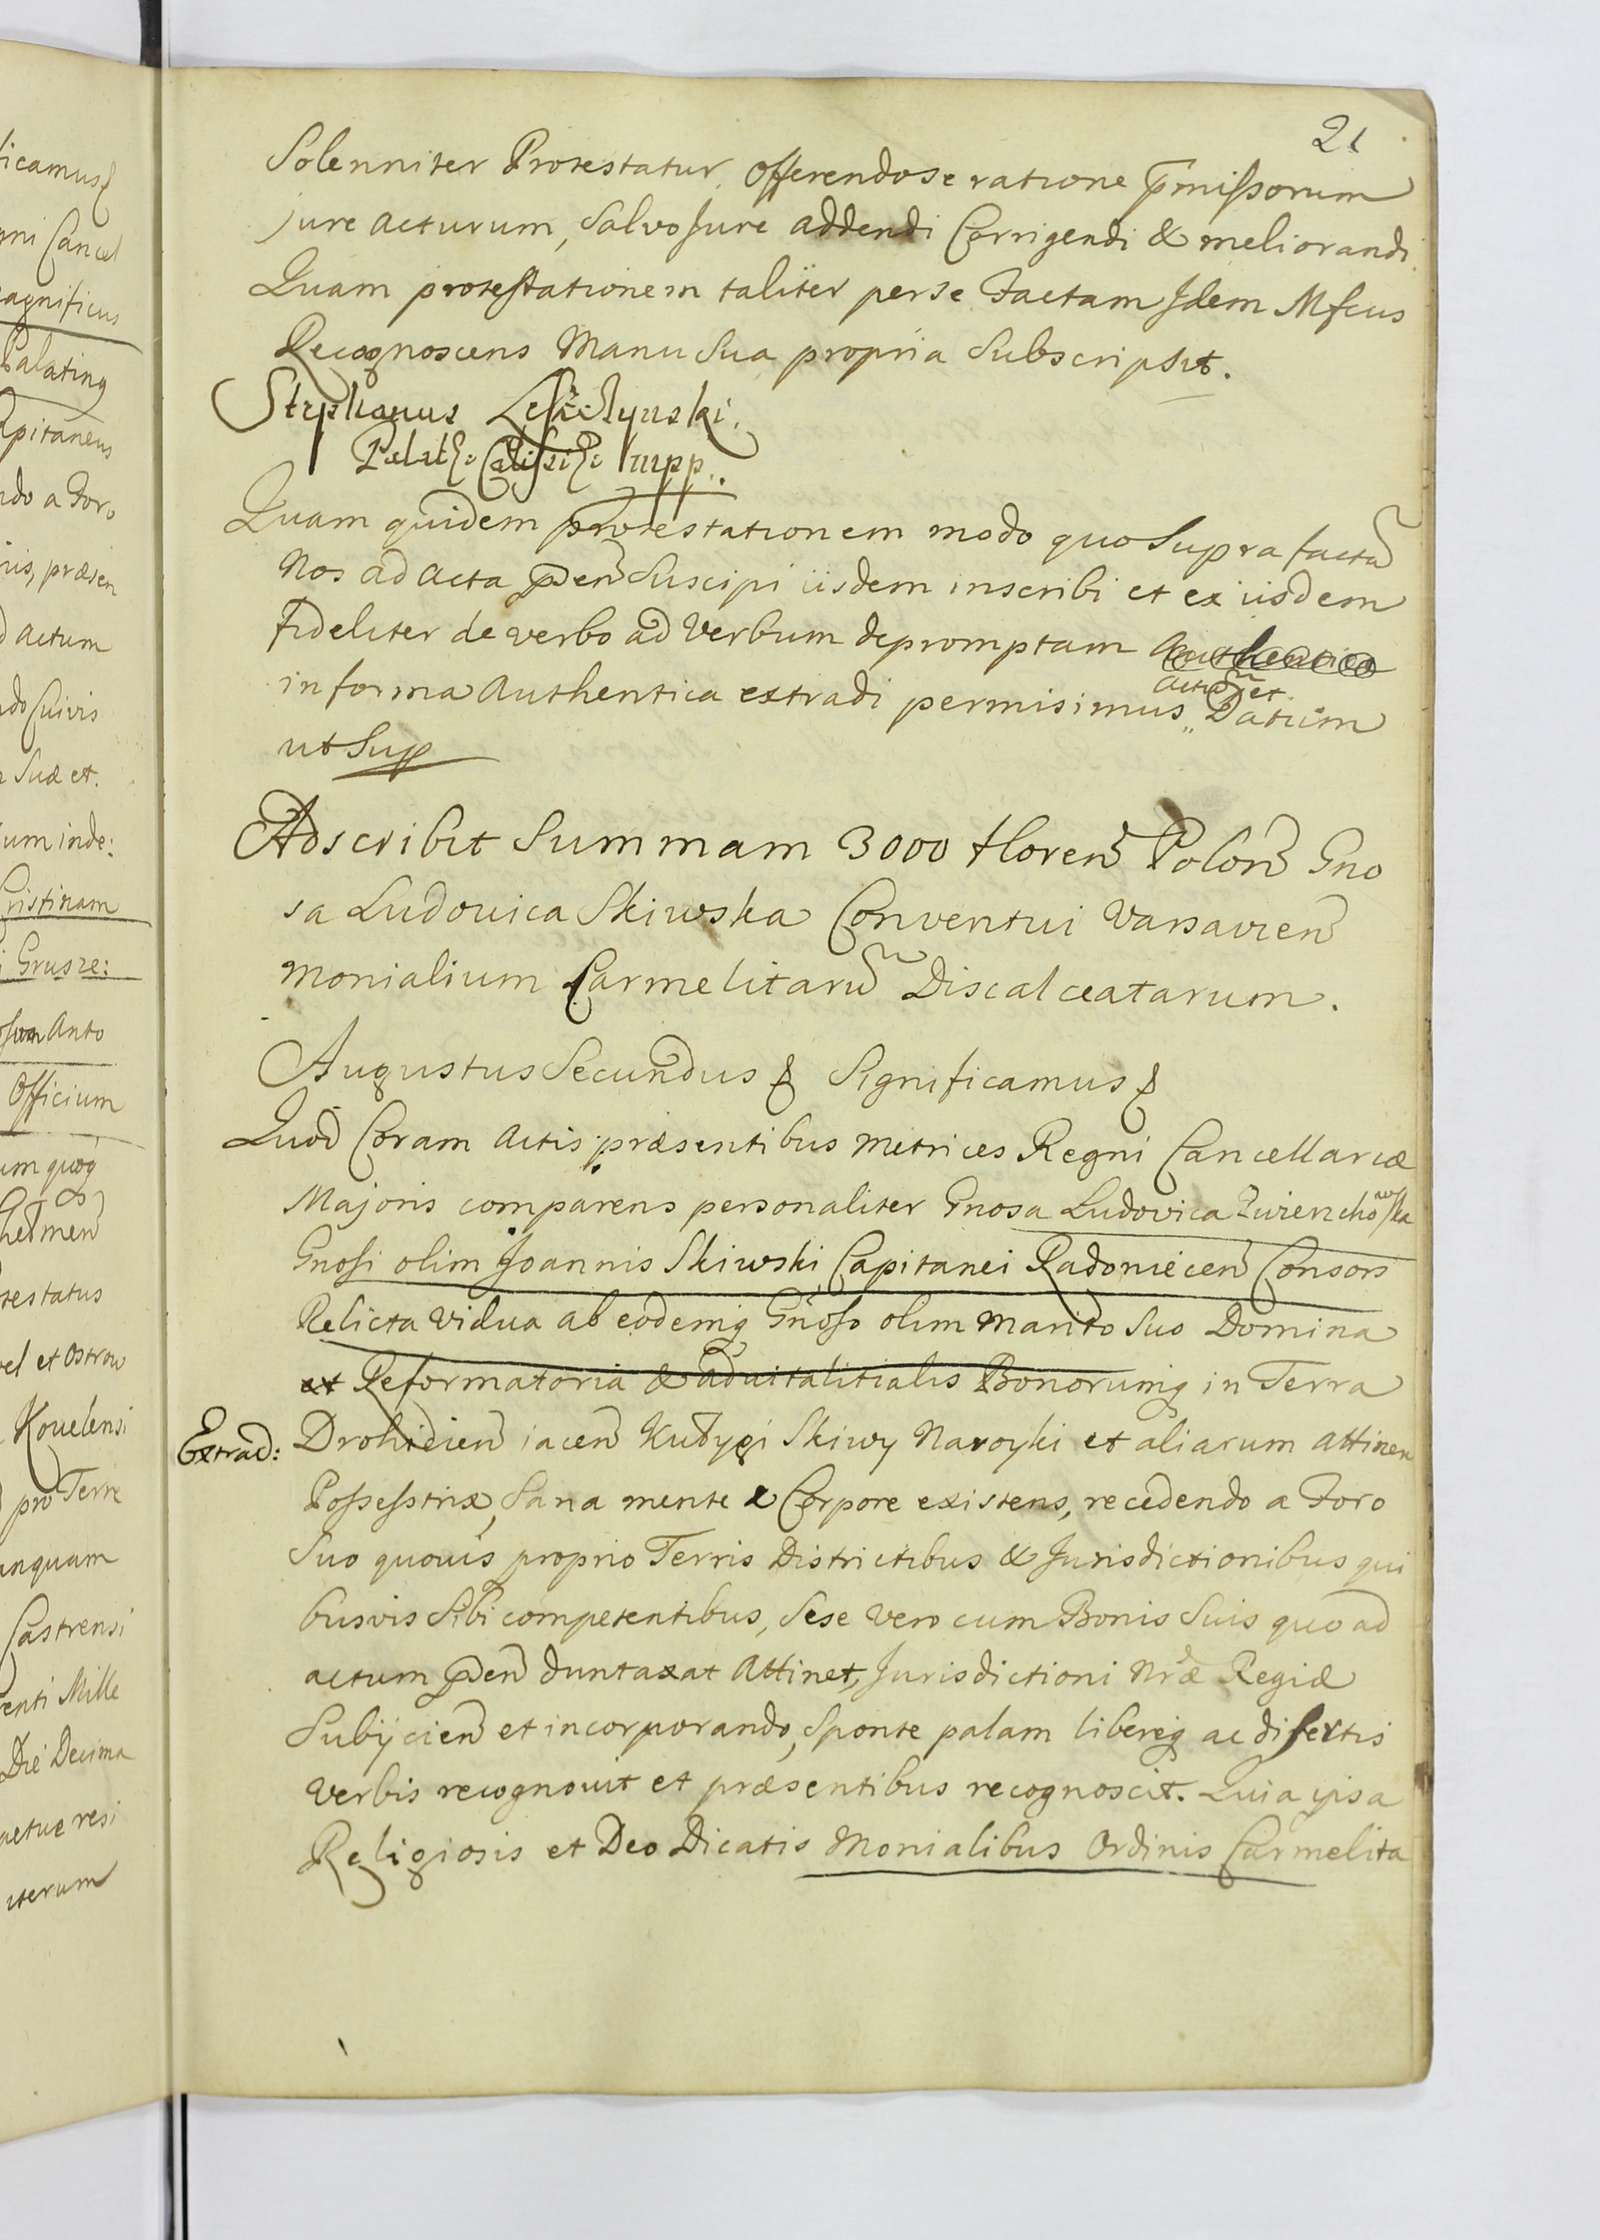 21
Solenniter Protestatur, Offerendo se ratione p̄missorum
jure acturum, Salvo Jure addendi Corrigendi & meliorandi.
Quam protestationem taliter per se Factam Idem Mfcus
Recognoscens Manu Sua propria Subscripsit.
Stephanus Leszczynski
mpp.
Quam quidem protestationem modo quo Supra factā
Nos ad Acta p̄en̄ Suscipi iisdem inscribi et ex iisdem
fideliter de verbo ad Verbum depromptam
in forma Authentica extradi permisimus Actū et Datum
ut Sup
Adscribit Summam 3000 floren̄ Polon̄ Gno
sa Ludovica Skiwska Conventui Varsavien̄
Monialium Carmelitarū Discalceatarum.
Augustus Secundus & Significamus &
Quod Coram Actis præsentibus Metrices Regni Cancellariæ
Majoris comparens personaliter Gnosa Ludovica Zwierzchowska
Gnosi olim Joannis Skiwski Capitanei Radoniecen̄ Consors
Relicta Vidua ab eodemq Gnoso olim Marito Suo Domina
et Reformatoria & advitalitialis Bonorumq in Terra
Extrad: Drohicien̄ iacen̄ Skiwy Naroyki et aliarum attinen
Possesstrix, Sana mente & Corpore existens, recedendo a Foro
Suo quovis proprio Terris Districtibus & Jurisdictionibus qui
busvis Sibi competentibus, Sese vero cum Bonis Suis quo ad
actum p̄en̄ duntaxat Attinet, Jurisdictioni Nr̄æ Regiæ
Subijcien̄ et incorporando, Sponte palam libereq ac disertis
Verbis recognovit et præsentibus recognoscit. Quia ipsa
Religiosis et Deo Dicatis Monialibus Ordinis Carmelita